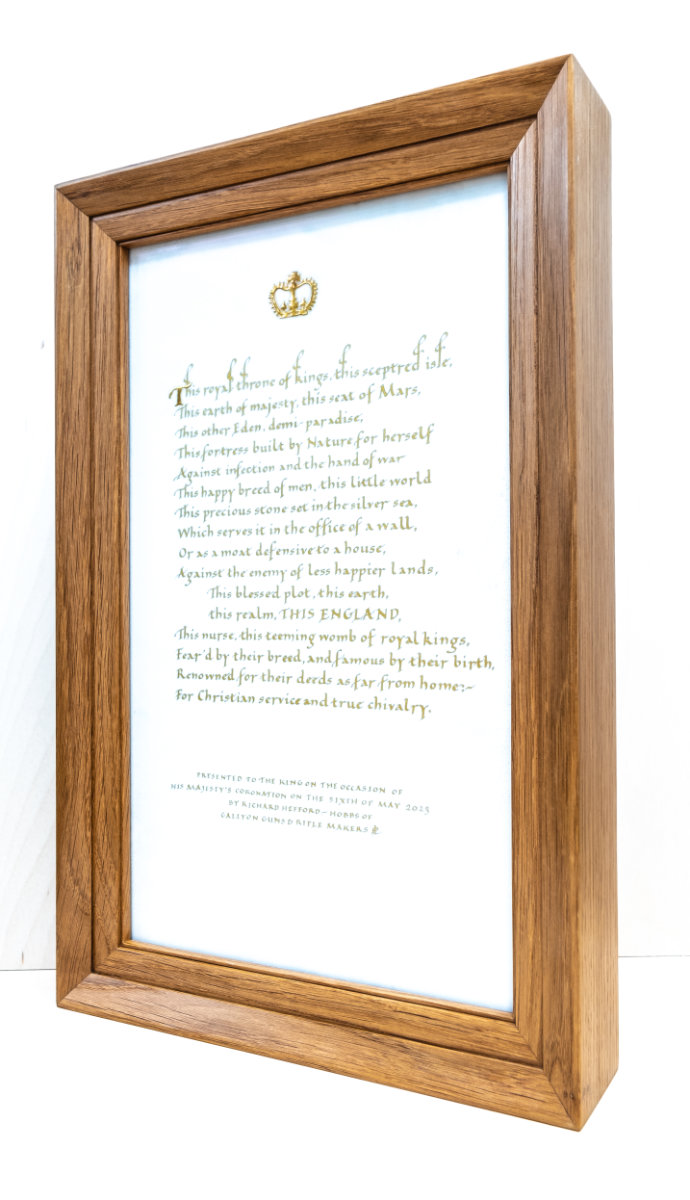 This royal throne of kings, this sceptred isle,
This earth of majesty, this seat of Mars,
This other Eden, demi-paradise,
This fortress built by Nature for herself
Against infection and the hand of war
This happy breed of men, this little world
This precious stone set in the silver sea,
Which serves it in the office of a wall,
Or as a moat defensive to a house,
Against the enemy of less happier lands,
This blessed plot, this earth,
this realm, THIS ENGLAND,
This nurse, this teeming womb of royal kings,
Fear'd by their breed, and famous by their birth,
Renowned for their deeds as far from home:~
For Christian service and true chivalry.
PRESENTED TO THE KING ON THE OCCASION OF
HIS MAJESTY'S CORONATION ON THE SIXTH OF MAY 2023
BY RICHARD HEFFORD-HOBBS OF
GALLYON GUNS & RIFLE MAKERS